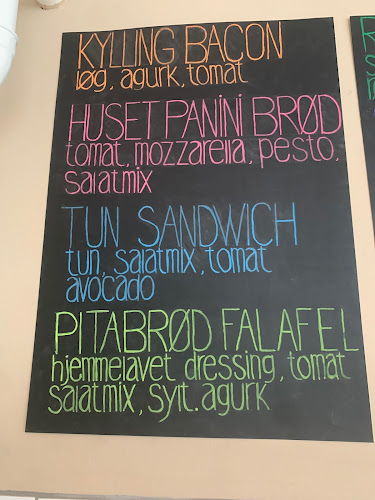 KYLLING BACON
løg, agurk, tomat
HUSET PANINI BRØD
tomat, mozzarella, pesto,
salatmix
TUN SANDWICH
tun, salatmix, tomat
avocado
PITABRØD FALAFEL
hjemmelavet dressing, tomat
salatmix, sylt. agurk